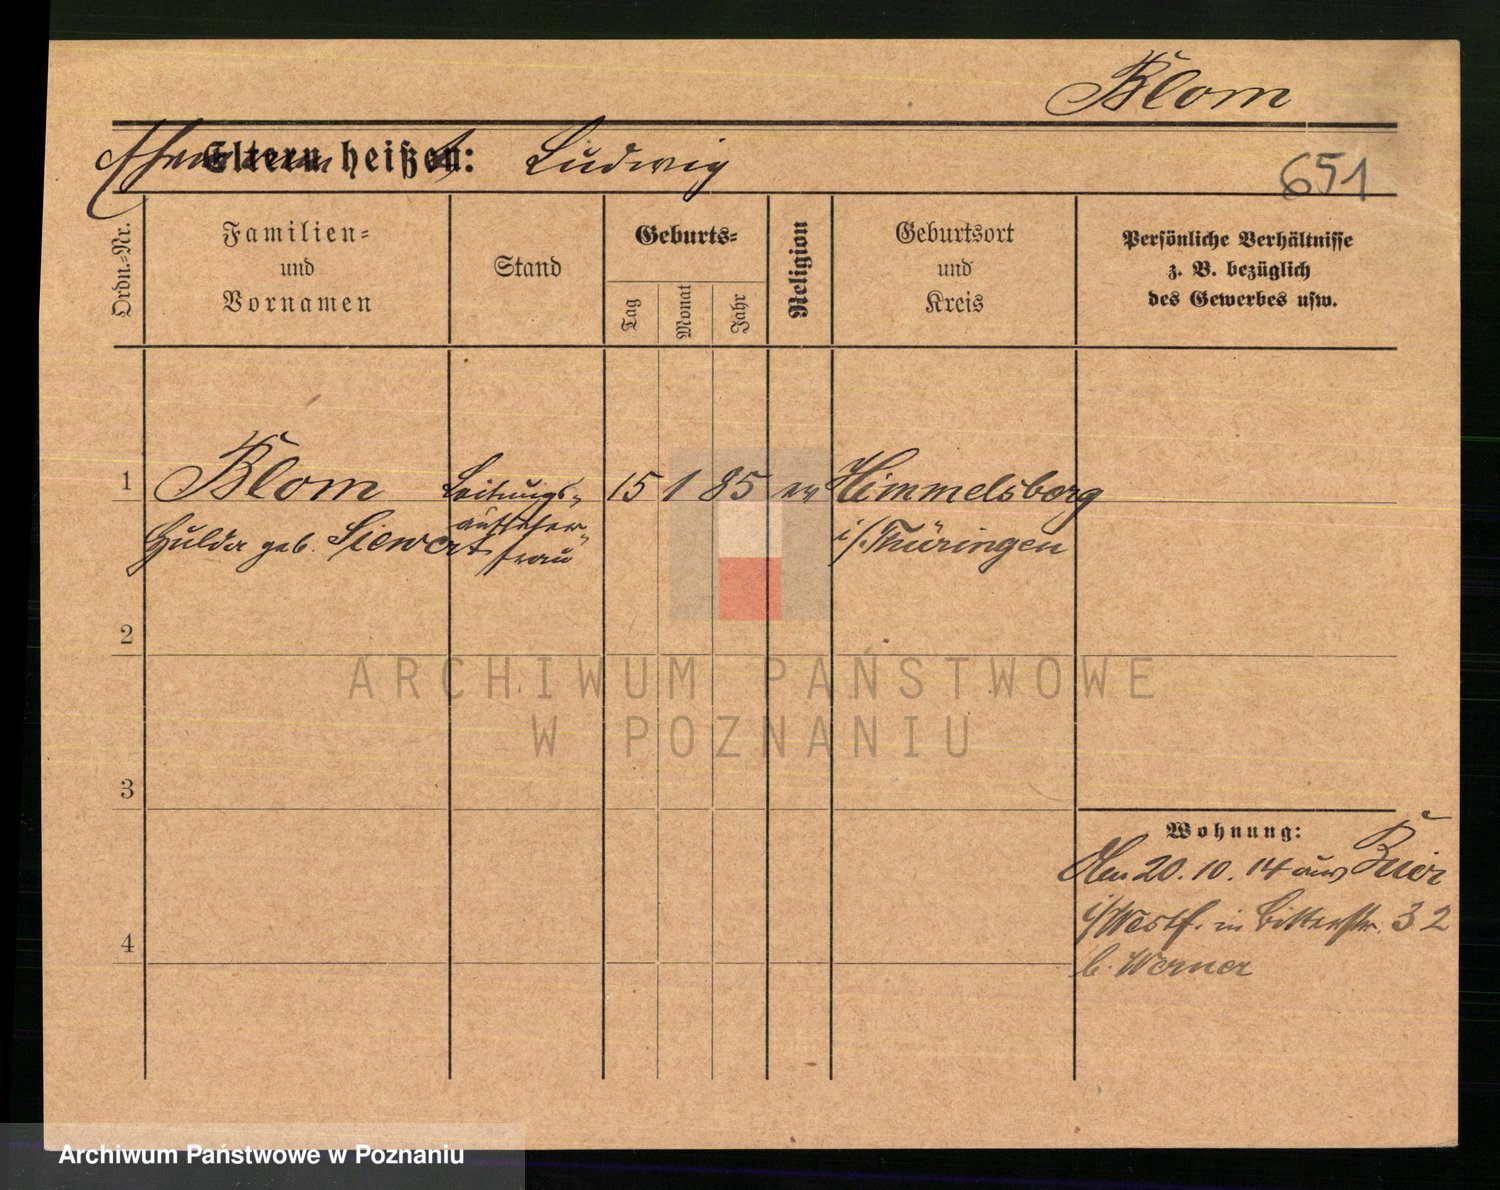 Blom
Ehemann Eltern heißen: Ludwig
651
Ordn.-Nr.
Familien-
und
Vornamen
Stand
Geburts-
Tag
Monat
Jahr
Religion
Geburtsort
und
Kreis
Persönliche Verhältnisse
z. B. bezüglich
des Gewerbes usw.
1 Blom Leitungs- 15 1 85 ev Himmelsberg
Hulda geb. Siewert aufseher- i/Thüringen
frau
2
ARCHIWUM PAŃSTWOWE
W POZNANIU
3
Wohnung:
Den 20.10.14 aus Buer
i/Westf. in Bitterstr. 32
4
b. Werner
Archiwum Państwowe w Poznaniu